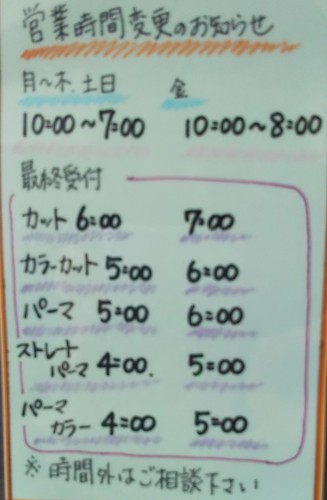 営業時間変更のお知らせ
月〜木.土日 金
10:00〜7:00 10:00〜8:00
最終受付
カット 6:00 7:00
カラーカット 5:00 6:00
パーマ 5:00 6:00
ストレート
パーマ 4:00. 5:00
パーマ
カラー 4:00 5:00
※時間外はご相談下さい